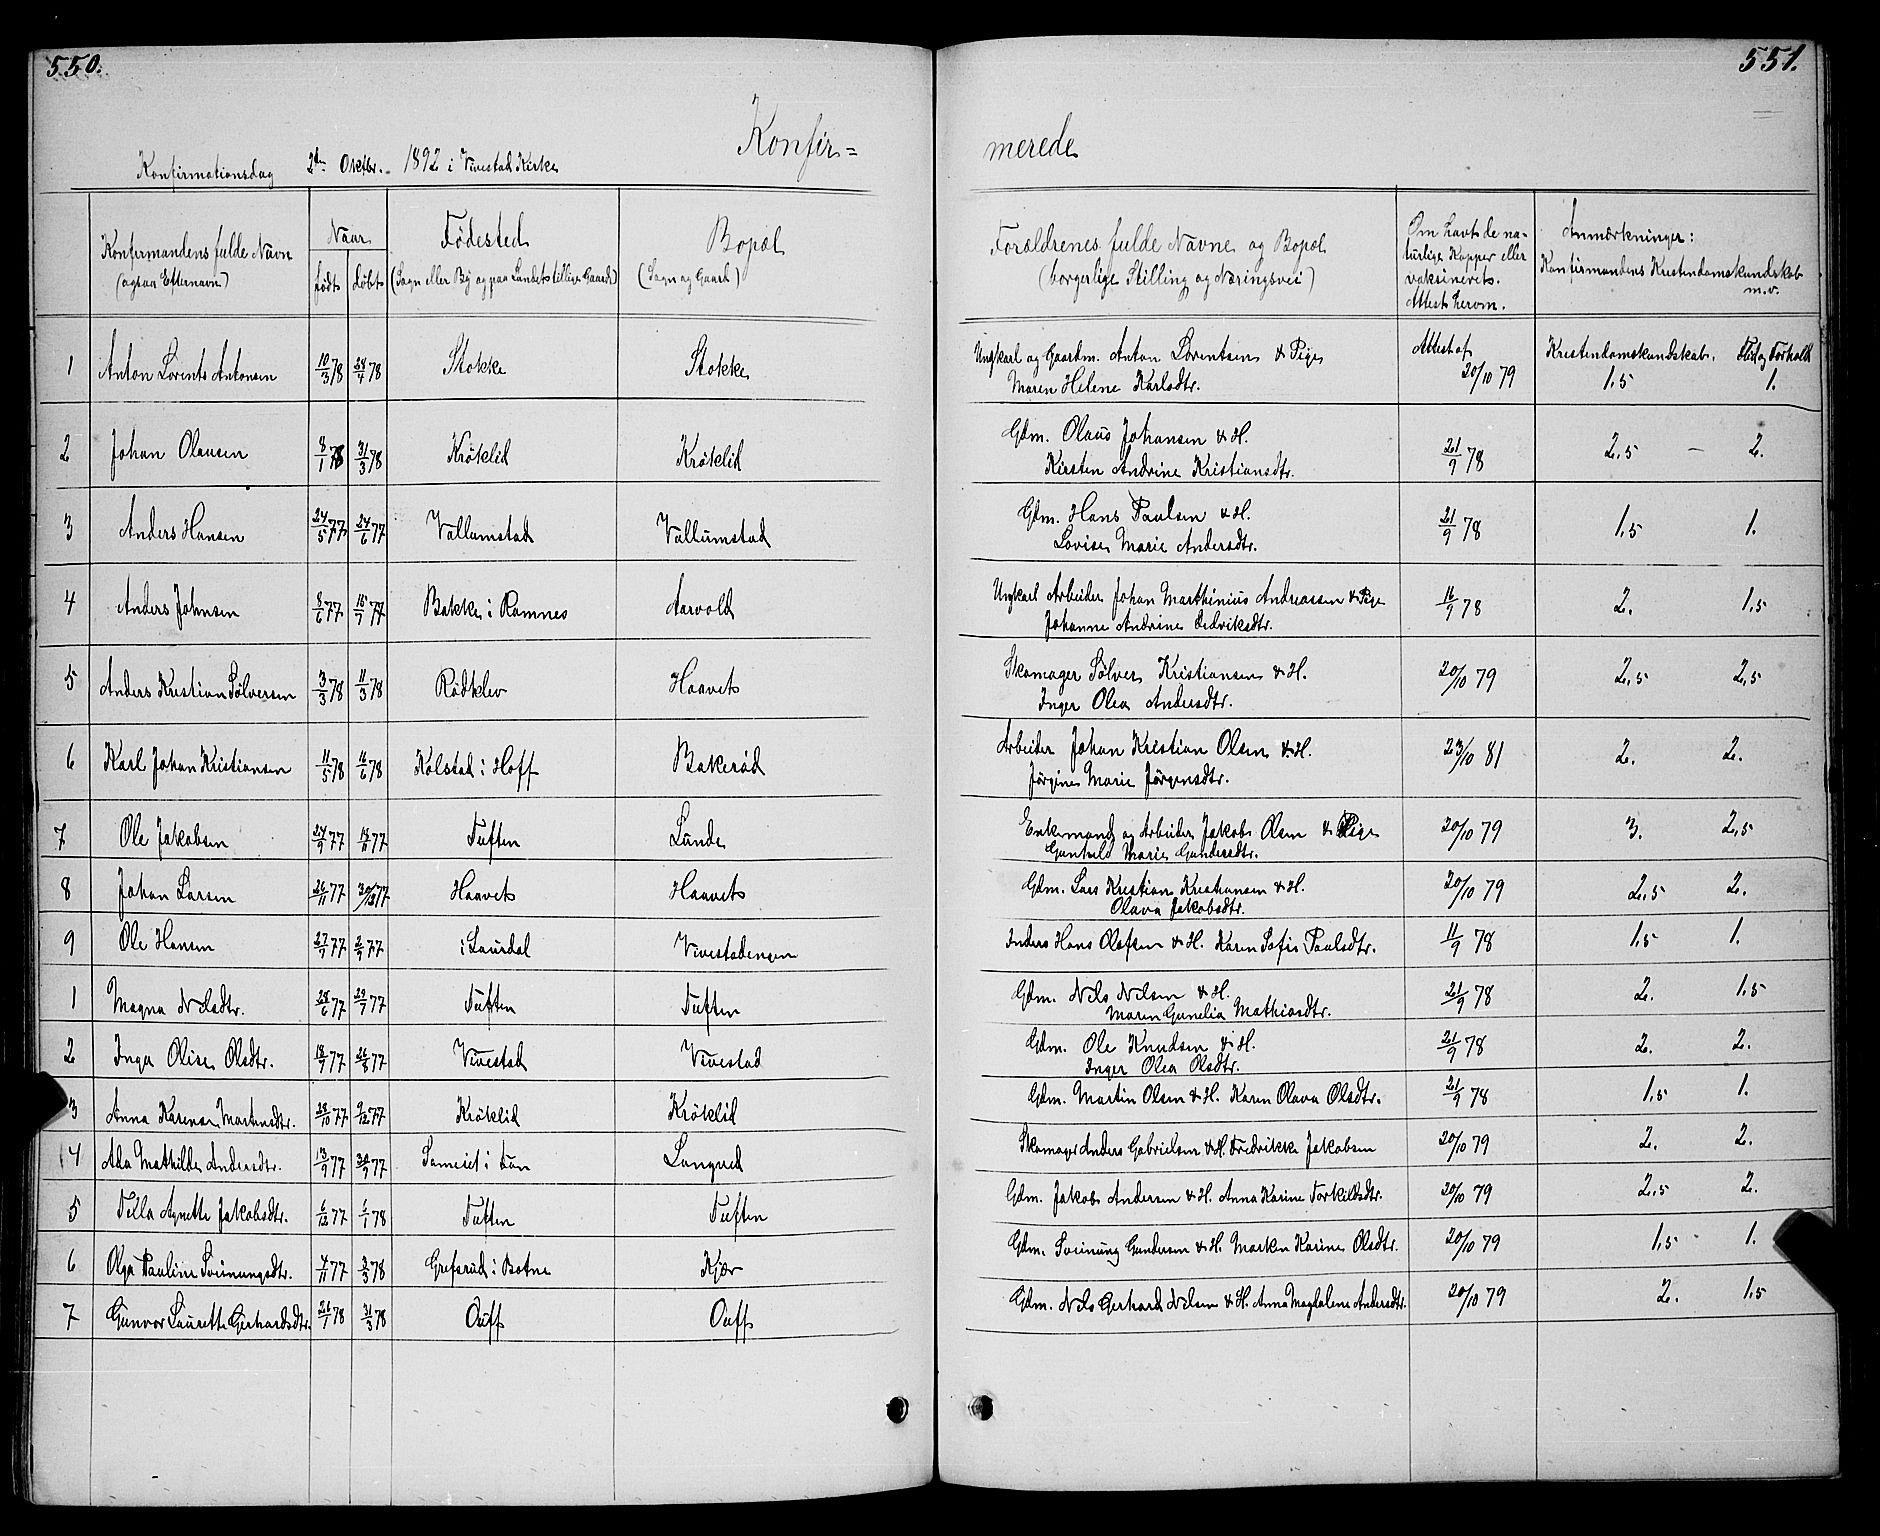 550.
551.
Konfir=
merede
Konfirmationsdag 2den Oktbr. 1892 i Vivestad Kirke
Konfirmandens fulde Navn (ogsaa Efternavn) | Naar født | døbt | Fødested (Sogn eller By og paa Landet tillige Gaard) | Bopæl (Sogn og Gaard) | Forældrenes fulde Navne og Bopæl (borgerlige Stilling og Næringsvei) | Om havt de naturlige Kopper eller vaksineret. Attest herom. | Anmærkninger: Konfirmandens Kristendomskundskab m.v.
1 Anton Lorents Antonsen 10/3 78 28/4 78 Stokke Stokke Ungkarl og Gaardm. Anton Lorentsen & Pige Maren Helene Karlsdtr. Attest af 20/10 79 Kristendomskundskab. 1.5 Flid og Forhold 1.
2 Johan Olausen 8/1 78 31/3 78 Krøklid Krøklid Gdm. Olaus Johansen & H. Kirsten Andrine Kristiansdtr. 21/9 78 2.5 — 2.
3 Anders Hansen 24/5 77 24/6 77 Vallumstad Vallumstad Gdm. Hans Paulsen & H. Lovise Marie Andersdtr. 21/9 78 1.5 1.
4 Anders Johnsen 8/6 77 15/7 77 Bakke i Ramnes Aarvold Ungkarl Arbeider Johan Marthinius Andreassen & Pige Johanne Andrine Dedviksdtr. 16/9 78 2. 1.5
5 Anders Kristian Sølversen 3/3 78 11/3 78 Rødklev Haavet Skomager Sølver Kristiansen & H. Inger Olea Andersdtr. 20/10 79 2.5 2.5
6 Karl Johan Kristiansen 11/5 78 16/6 78 Kolstad i Hoff Bakerød Arbeider Johan Kristian Olsen & H. Jørgine Marie Jørgensdtr. 23/10 81 2. 2.
7 Ole Jakobsen 24/9 77 18/11 77 Tuften Lunde Enkemand og Arbeider Jakob Olsen & Pige Gunhild Marie Gundersdtr. 20/10 79 3. 2.5
8 Johan Larsen 26/11 77 30/12 77 Haavet Haavet Gdm. Lars Kristian Kristiansen & H. Olava Jakobsdtr. 20/10 79 2.5 2.
9 Ole Hansen 27/7 77 2/9 77 i Laurdal Vivestadengen Inders Hans Olafsen & H. Karen Sofie Paulsdtr. 11/9 78 1.5 1.
1 Magna Nilsdtr. 28/6 77 29/7 77 Tuften Tuften Gdm. Nils Nilsen & H. Maren Gunelia Mathiasdtr. 21/9 78 2. 1.5
2 Inga Olise Olsdtr. 18/7 77 26/8 77 Vivestad Vivestad Gdm. Ole Knudsen & H. Inger Olea Olsdtr. 21/9 78 2. 2.
3 Anna Karense Martinsdtr. 28/10 77 9/12 77 Krøklid Krøklid Gdm. Martin Olsen & H. Karen Olava Olsdtr. 21/9 78 1.5 1.
4 Ada Mathilde Andersdtr. 13/9 77 30/9 77 Sameiet i Fon Langved Skomager Anders Gabrielsen & H. Fredrikke Jakobsen 20/10 79 2. 2.
5 Tilla Agnette Jakobsdtr. 6/12 77 6/1 78 Tuften Tuften Gdm. Jakob Andersen & H. Anna Karine Torkildsdtr. 20/10 79 2.5 2.
6 Olga Pauline Sveinungsdtr. 4/11 77 3/3 78 Grefsrud i Botne Kjær Gdm. Sveinung Gundersen & H. Marken Karine Olsdtr. 20/10 79 1.5 1.
7 Gunvor Laurette Gerhardsdtr. 26/1 78 31/3 78 Ouff Ouff Gdm. Nils Gerhard Nilsen & H. Anna Magdalene Andersdtr. 20/10 79 2. 1.5